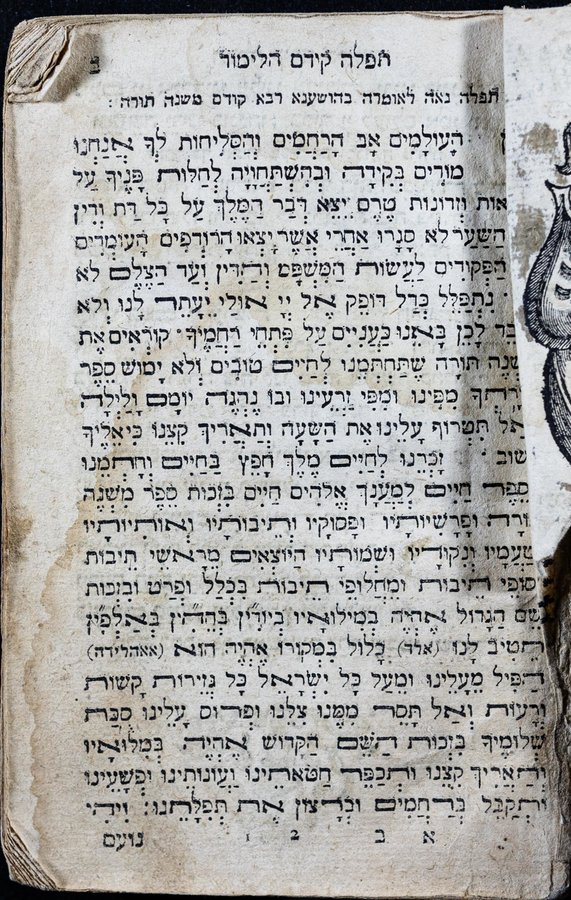 תפלה קודם הלימוד
תפלה נאה לאומרה בהושענא רבא קודם משנה תורה:
הָעוֹלָמִים אָב הָרַחֲמִים וְהַסְּלִיחוֹת לְךָ אֲנַחְנוּ
מוֹדִים בְּקִידָה וּבְהִשְׁתַּחֲוָיָה לְחַלּוֹת פָּנֶיךָ עַל
אוֹת וּזְרוּנוֹת טֶרֶם יֵצֵא דְּבַר הַמֶּלֶךְ עַל כָּל דַּת וְדִין
הַשַּׁעַר לֹא סָגָרוּ אַחֲרֵי אֲשֶׁר יָצְאוּ הָרוֹדְפִים הָעוֹמְדִים
הַפְּקוּדִים לַעֲשׂוֹת הַמִּשְׁפָּט וְהַדִּין וְעַד הַצֶּלֶם לֹא
נִתְפַּלֵּל כְּדַל דּוֹפֵק אֶל יְיָ אוּלַי יֵעָתֵר לָנוּ וְלֹא
לָכֵן בָּאֵינוּ כַּעֲנִיִּים עַל פִּתְחֵי רַחֲמֶיךָ קוֹרְאִים אֶת
תּוֹרָה שֶׁתַּחְתְּמֵנוּ לְחַיִּים טוֹבִים וְלֹא יָמוּשׁ סֵפֶר
מִפִּינוּ וּמִפִּי זַרְעֵינוּ וּבוֹ נֶהְגֶּה יוֹמָם וָלַיְלָה
וְאַל תִּטְרוֹף עָלֵינוּ אֶת הַשָּׁעָה וְתַאֲרִיךְ קִצֵּנוּ כִּי אֵלֶיךָ
זָכְרֵנוּ לְחַיִּים מֶלֶךְ חָפֵץ בַּחַיִּים וְחָתְמֵנוּ
בְּסֵפֶר חַיִּים לְמַעַנְךָ אֱלֹהִים חַיִּים בִּזְכוּת סֵפֶר מִשְׁנֶה
תּוֹרָה וּפָרָשִׁיוֹתָיו וּפְסוּקָיו וְתֵיבוֹתָיו וְאוֹתִיּוֹתָיו
וּטְעָמָיו וְנִקּוּדָיו וּשְׁמוֹתָיו הַיּוֹצְאִים מֵרָאשֵׁי תֵיבוֹת
וְסוֹפֵי תֵיבוֹת וּמֵחִלּוּפֵי תֵיבוֹת בִּכְלָל וּפְרָט וּבִזְכוּת
שֵׁם הַגָּדוֹל אֶהְיֶה בְּמִילּוּאָיו בְּיוּדִ"ין בְּהֵהִ"ין בְּאַלְפִ"ין
וְתֵטִיב לָנוּ (אלד) כָּלוּל בִּמְקוֹרוֹ אֶהְיֶה הוּא (אאהלידה)
הַפֵּיל מֵעָלֵינוּ וּמֵעַל כָּל יִשְׂרָאֵל כָּל גְּזֵירוֹת קָשׁוֹת
וְרָעוֹת וְאַל תָּסֵר מִמֶּנּוּ צִלֵּנוּ וּפְרוֹס עָלֵינוּ סֻכַּת
שְׁלוֹמֶיךָ בִּזְכוּת הַשֵּׁם הַקָּדוֹשׁ אֶהְיֶה בְּמִלּוּאָיו
וְתַאֲרִיךְ קִצֵּנוּ וּתְכַפֵּר חַטֹּאתֵינוּ וַעֲוֹנוֹתֵינוּ וּפְשָׁעֵינוּ
וּתְקַבֵּל בְּרַחֲמִים וּבְרָצוֹן אֶת תְּפִלָּתֵנוּ: וִיהִי
א ב 2 1 נועם